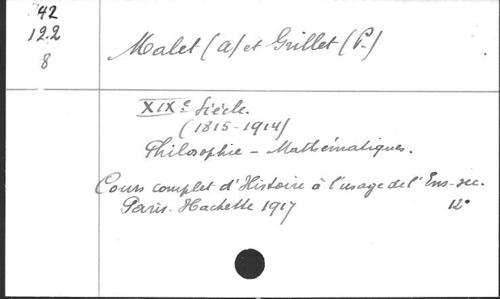 42
122
8
Malet (A) et Grillet (P.)
XIXe Siècle.
(1815-1914)
Philosophie - Mathématiques.
Cours complet d'Histoire à l'usage de l'Ens-sec.
Paris. Hachette 1917 12°